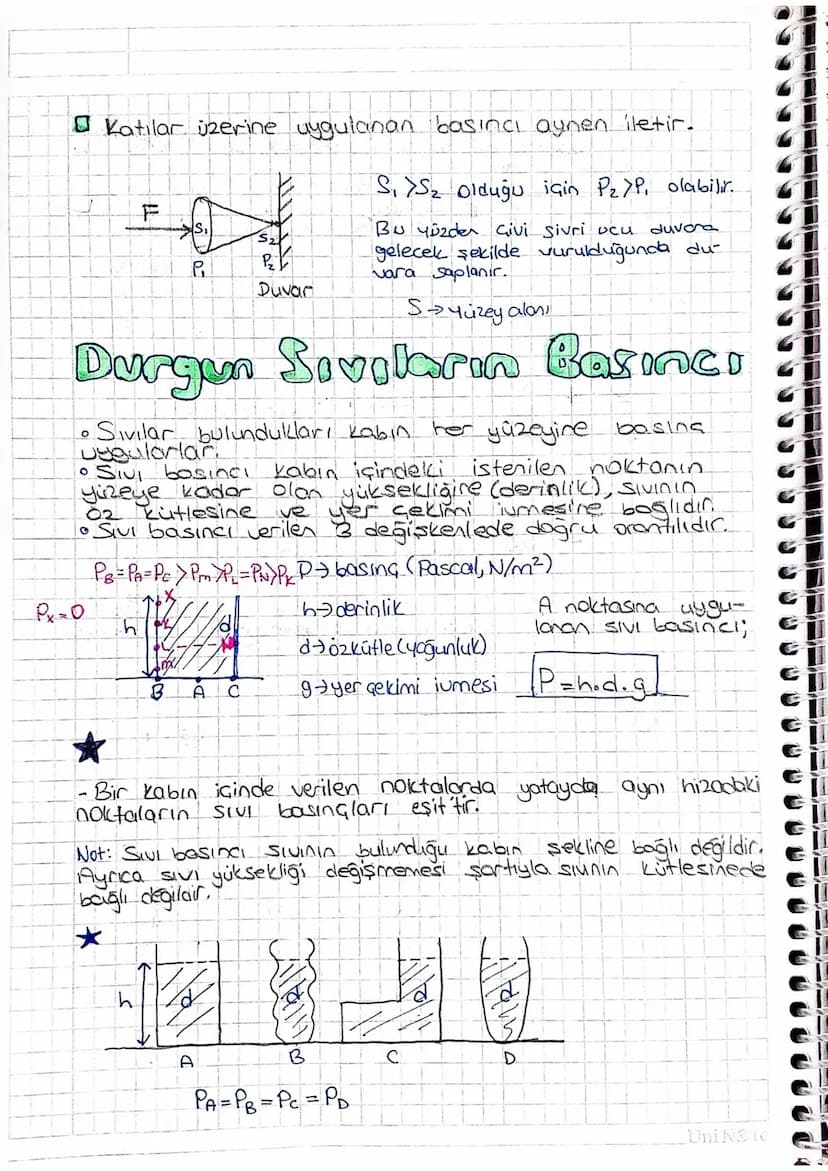 Katılar üzerine uygulanan basıncı aynen iletir.
F
S₁
S₂
P₁
P₂
Duvar
S₁>S₂ olduğu için P₂>P₁ olabilir.
Bu yüzden çivi sivri ucu duvara
gelecek şekilde vurulduğunda du-
vara saplanır.
S→yüzey alanı
Durgun Sıvıların Basıncı
• Sıvılar bulundukları kabın her yüzeyine basınç
uygularlar.
• Sıvı basıncı kabın içindeki istenilen noktanın
yüzeye kadar olan yüksekliğine (derinlik), sıvının
öz kütlesine ve yer çekimi ivmesine bağlıdır.
• Sıvı basıncı verilen 3 değişkenlede doğru orantılıdır.
P_B=P_A=P_C>P_m>P_L=P_N>P_K
P→basınç (Pascal, N/m²)
Pₓ=0
X
K
h
d
L
N
m
B A C
h→derinlik
d→özkütle (yoğunluk)
g→yer çekimi ivmesi
A noktasına uygu-
lanan sıvı basıncı;
P=h.d.g
- Bir kabın içinde verilen noktalarda yatayda aynı hizadaki
noktaların sıvı basınçları eşit'tir.
Not: Sıvı basıncı sıvının bulunduğu kabın şekline bağlı değildir.
Ayrıca sıvı yüksekliği değişmemesi şartıyla sıvının kütlesinede
bağlı değildir.
h
d d d d
A B C D
P_A=P_B=P_C=P_D